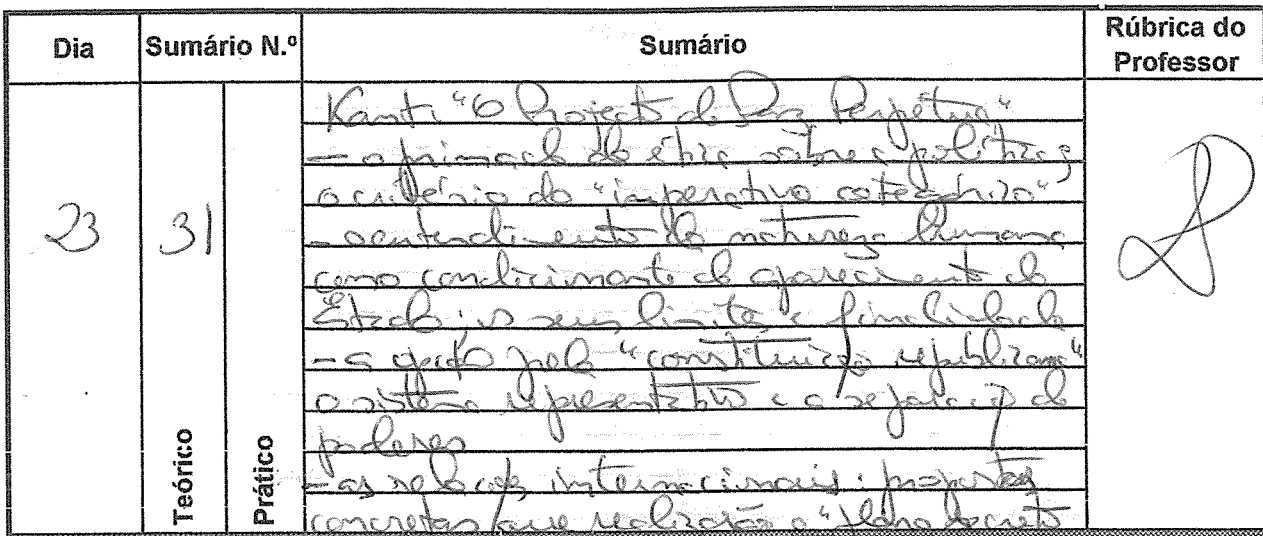 Dia
Sumário N.º
Sumário
Rúbrica do
Professor
23
31
Teórico
Prático
Kant: "O Projecto de Paz Perpétua"
- o primado da ética sobre a política;
o critério do "imperativo categórico"
- o entendimento da natureza humana
como condicionante do aparecimento do
Estado: os seus limites e finalidade
- a opção pela "constituição republicana"
o sistema representativo e a separação de
poderes
- as relações internacionais: propostas
concretas que realizarão o "plano secreto